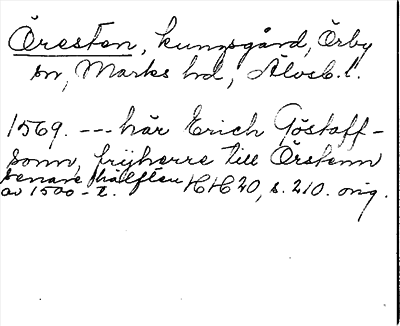 Öresten, kungsgård, Örby
sn, Marks hd, Älvsb. l.
1569. --- här Erich Göstaff-
sonn, frijherre till Örstenn
senare hälften HH 20, s. 210. orig.
av 1500-t.